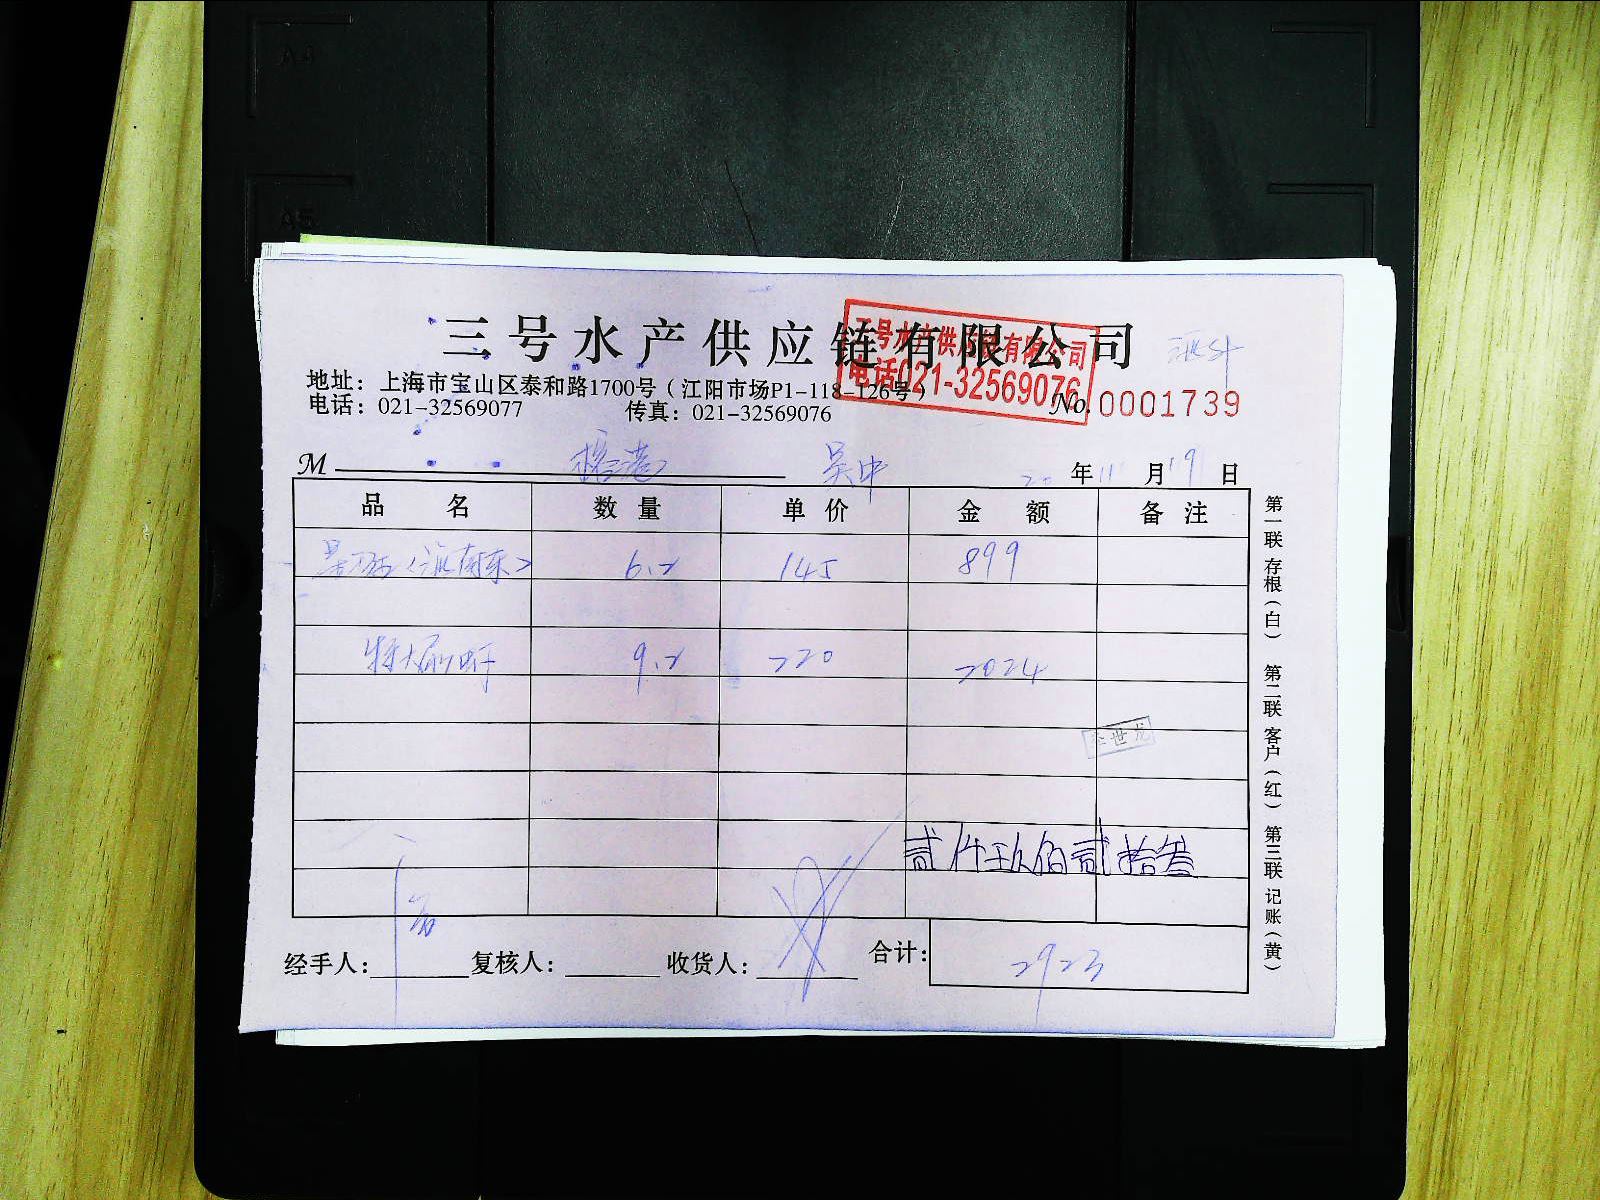 三号水产供应链有限公司
三号水产供应链有限公司
电话021-32569076
地址：上海市宝山区泰和路1700号（江阳市场P1-118-126号）
电话：021-32569077 传真：021-32569076
No.0001739
M 吴中 20年11月19日
品名 数量 单价 金额 备注
6.2 145 899
特大 9.2 220 2024
世龙
贰仟玖佰贰拾叁
经手人： 复核人： 收货人： 合计： 2923
第一联 存根（白） 第二联 客户（红） 第三联 记账（黄）
A4
A5